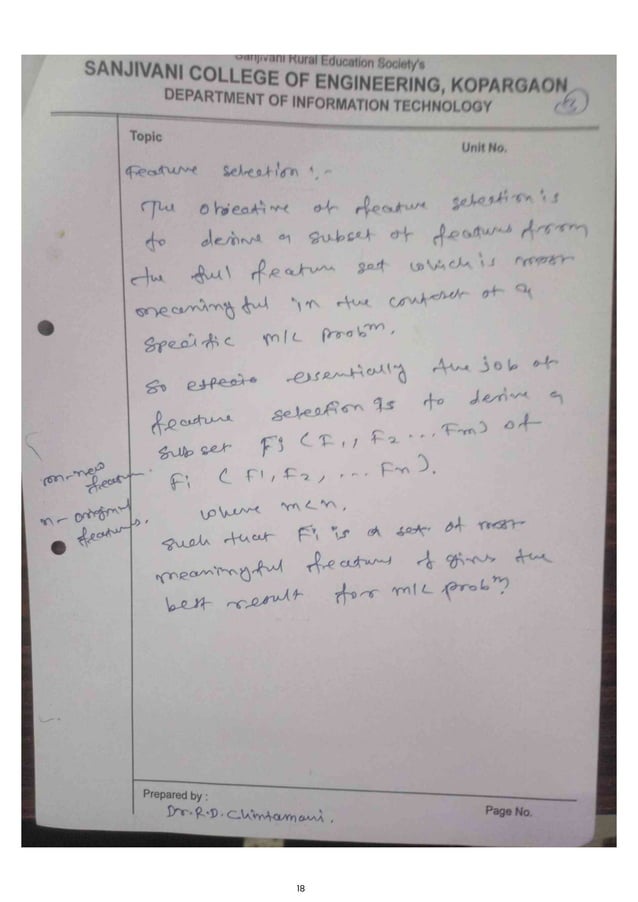 Sanjivani Rural Education Society's
SANJIVANI COLLEGE OF ENGINEERING, KOPARGAON
DEPARTMENT OF INFORMATION TECHNOLOGY
Topic
Unit No.
Feature selection :-
The objective of feature selection is
to derive a subset of features from
the full feature set which is most
meaningful in the context of a
specific M/L probm.
So essentially the job of
feature selection is to derive a
subset Fj (F1, F2 ... Fm) of
m-new
feature.
Fi (F1, F2, ... Fn).
n- original
features.
where m<n.
such that Fi is a set of most
meaningful features & gives the
best result for M/L probm
Prepared by :
Dr. R.D. Chintamani.
Page No.
18